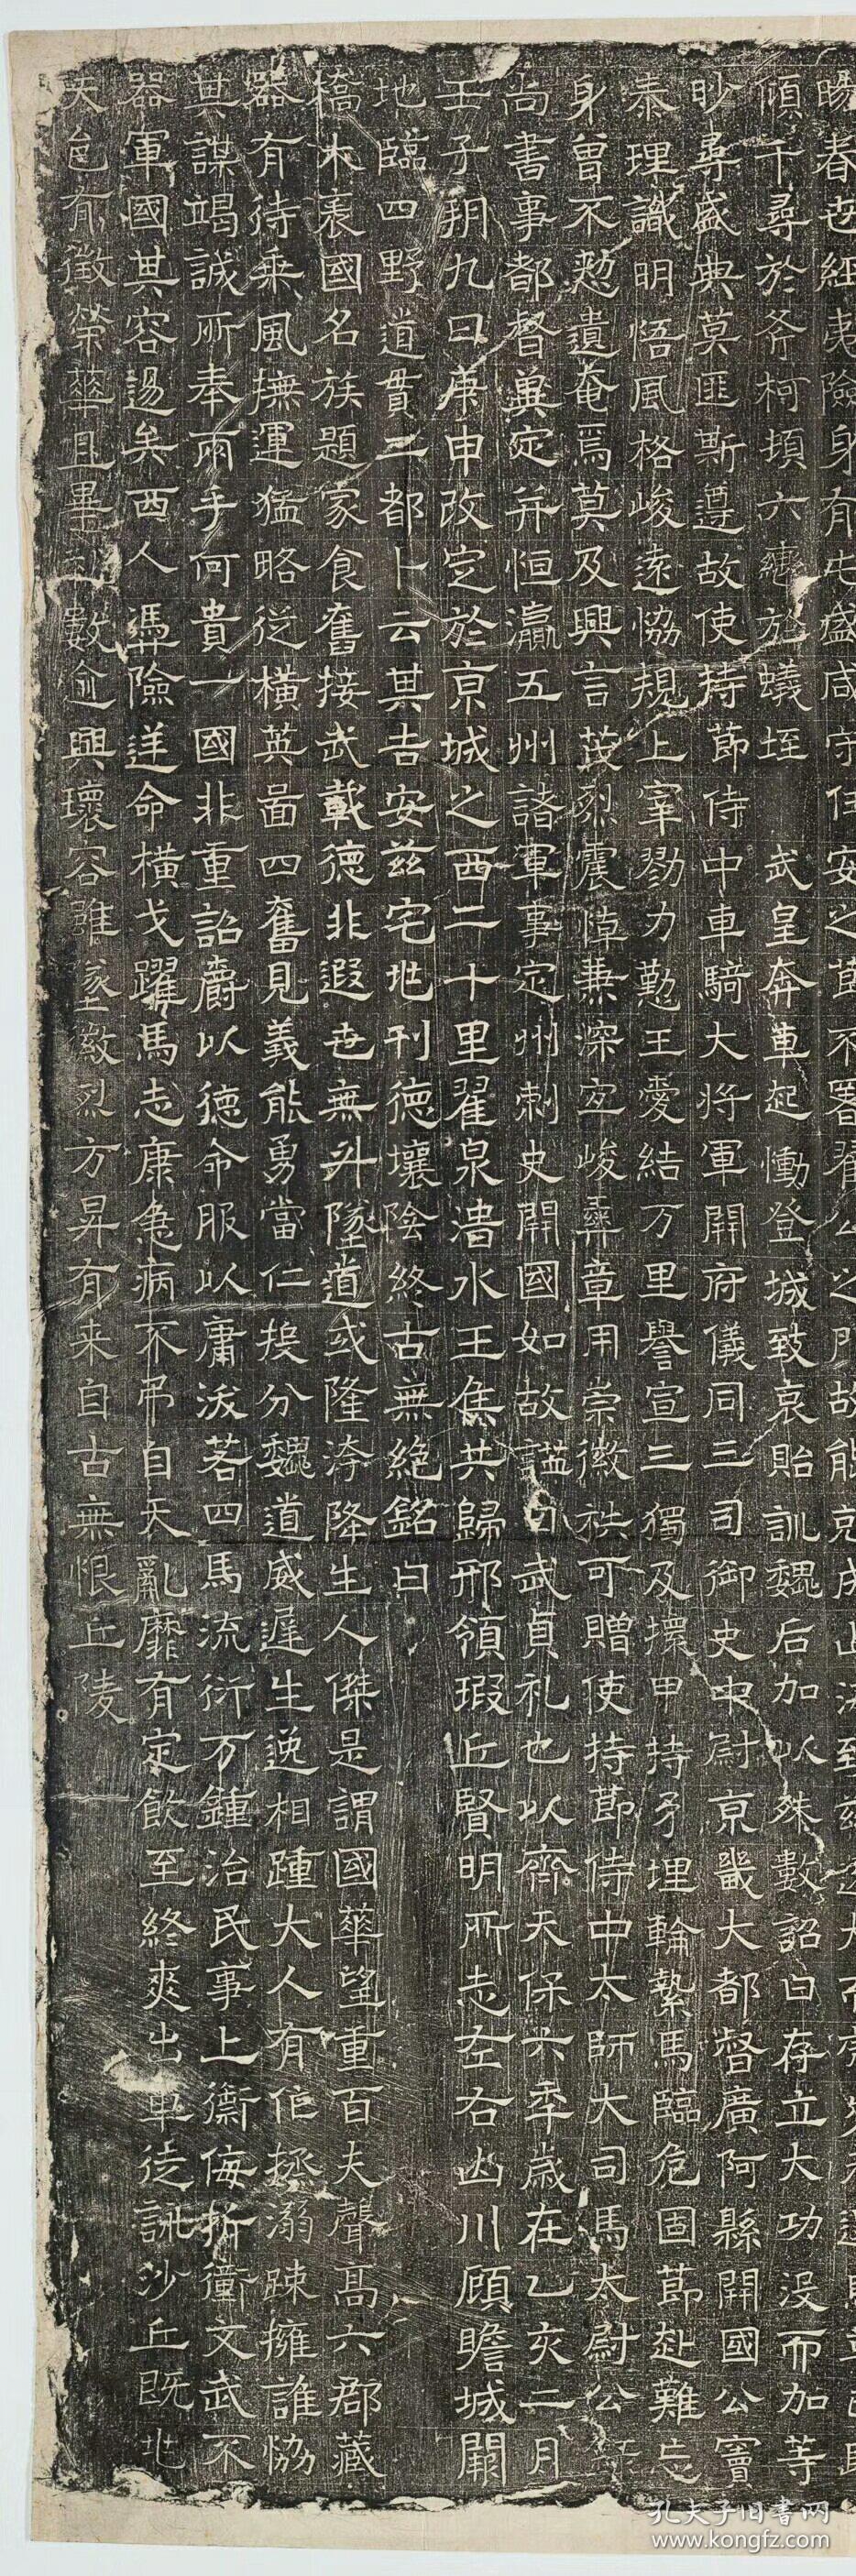 暘春世經夷險身有屯盛咸守任安之節不畧翟公之門故能克成
傾千尋於斧柯損六轡於蟻垤 武皇奔車起慟登城致哀貽訓魏后加以殊數詔曰存立大功沒而加等
眇尋盛典莫匪斯遵故使持節侍中車騎大將軍開府儀同三司御史中尉京畿大都督廣阿縣開國公竇
泰理識明悟風格峻遠恊規上宰勠力懃王愛結万里譽宣三獨及擐甲持矛埋輪縶馬臨危固節赴難忘
身曾不憖遺奄焉莫及興言茂烈震悼兼深宜峻彝章用崇徽袟可贈使持節侍中太師大司馬太尉公
尚書事都督冀定并恒瀛五州諸軍事定州刺史開國如故謚曰武貞礼也以齊天保六年歲在乙亥二月
壬子朔九日庚申改定於京城之西二十里翟泉澅水王焦共歸邢領瑕丘賢明所志左右山川顧瞻城闕
地臨四野道貫二都卜云其吉安茲宅地刊德壤陰終古無絶銘曰
橋木裏國名族題家食舊接武載德非遐世無升墜道或隆洿降生人傑是謂國華望重百夫聲高六郡藏
器有待乘風撫運猛略從橫英啚四奮見義能勇當仁挨分魏道威遲生逆相踵大人有作拯溺踈擁誰恊
其謀竭誠所奉兩乎何貴一國非重詔爵以德命服以庸沃若四馬流衍万鍾治民事上禦侮折衝文武不
器軍國其容逷矣西人馮險逆命橫戈躍馬志康急病不弔自天亂靡有定飲至終爽出車徒訊沙丘既地
天邑有徵榮華且畢 數逾興壞容雖墜徽烈方昇有来自古無恨丘陵
孔夫子旧书网
www.kongfz.com